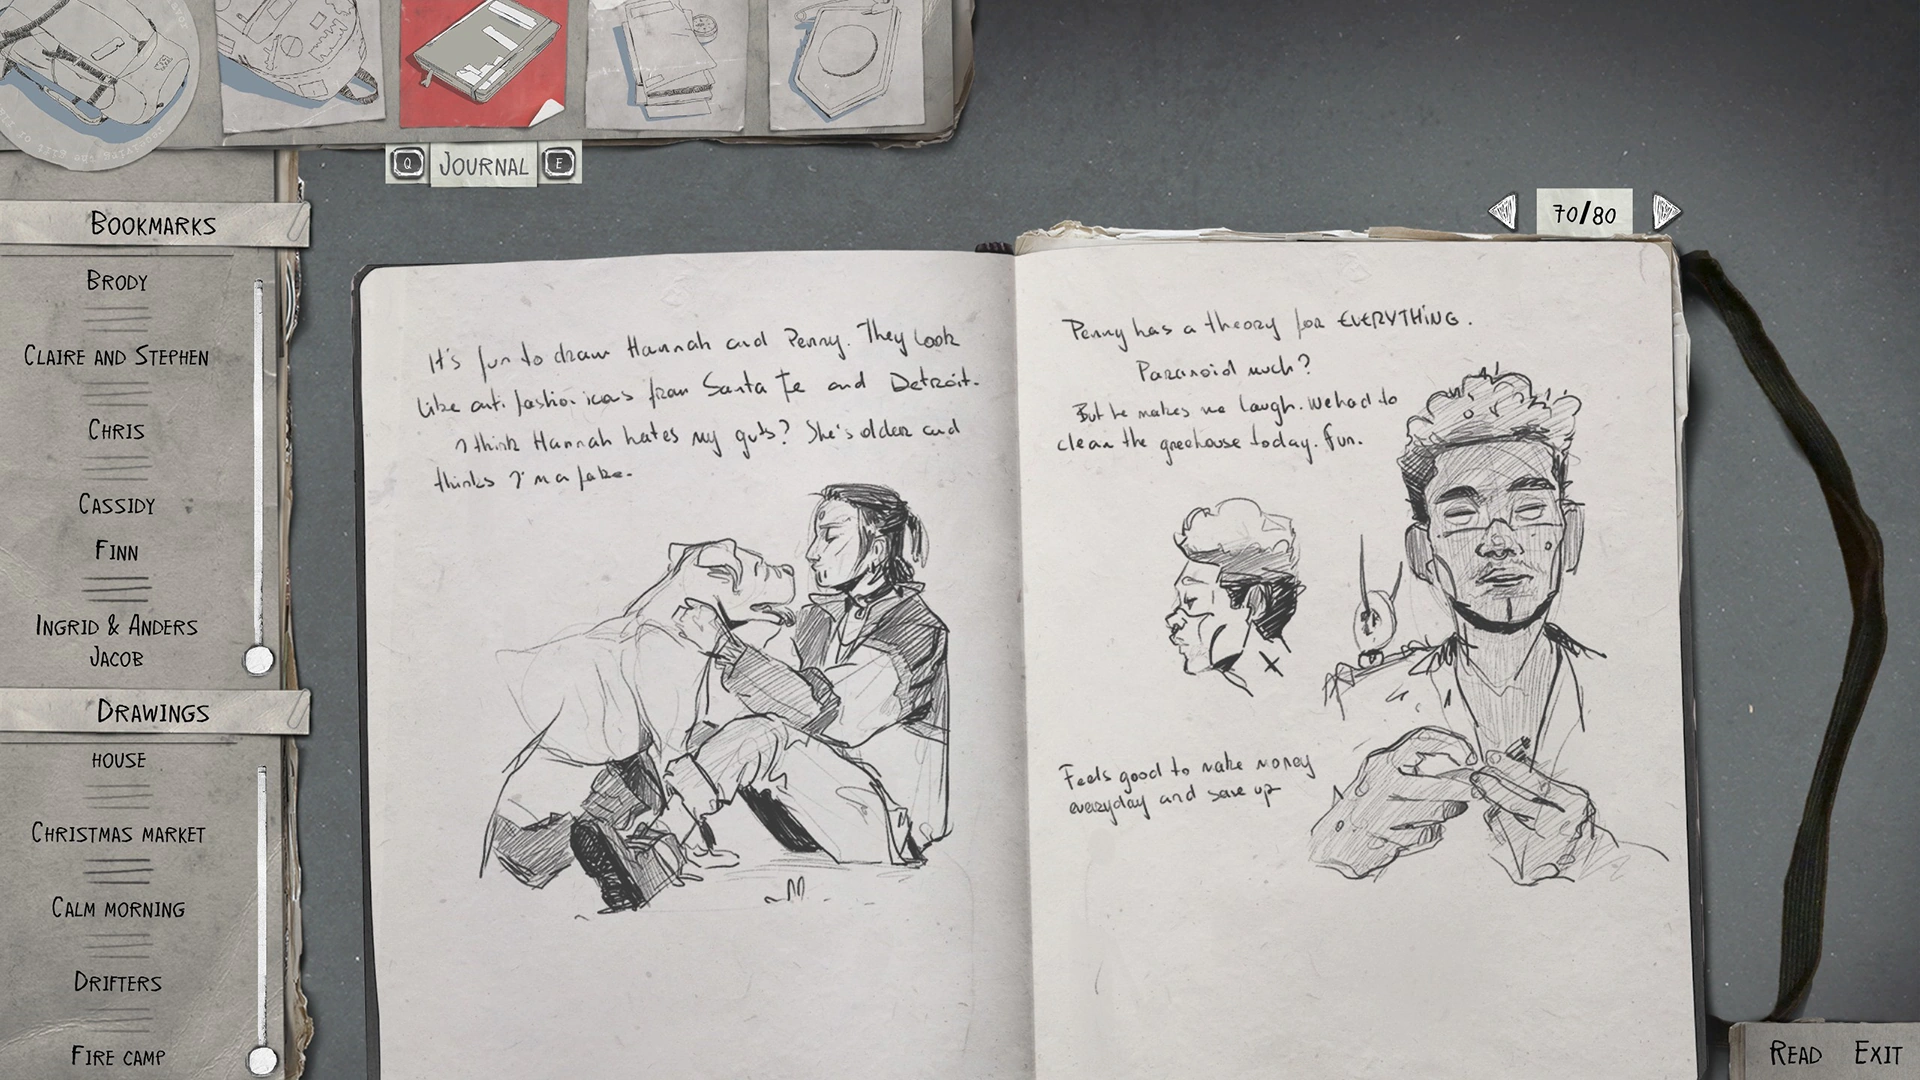 JOURNAL
Q
E
70/80
BOOKMARKS
BRODY
CLAIRE AND STEPHEN
CHRIS
CASSIDY
FINN
INGRID & ANDERS
JACOB
DRAWINGS
HOUSE
CHRISTMAS MARKET
CALM MORNING
DRIFTERS
FIRE CAMP
It's fun to draw Hannah and Penny. They look
like anti fashion icons from Santa Fe and Detroit.
I think Hannah hates my guts? She's older and
thinks I'm a fake.
Penny has a theory for EVERYTHING.
Paranoid much?
But he makes me laugh. We had to
clean the greehouse today. Fun.
Feels good to make money
everyday and save up
READ
EXIT